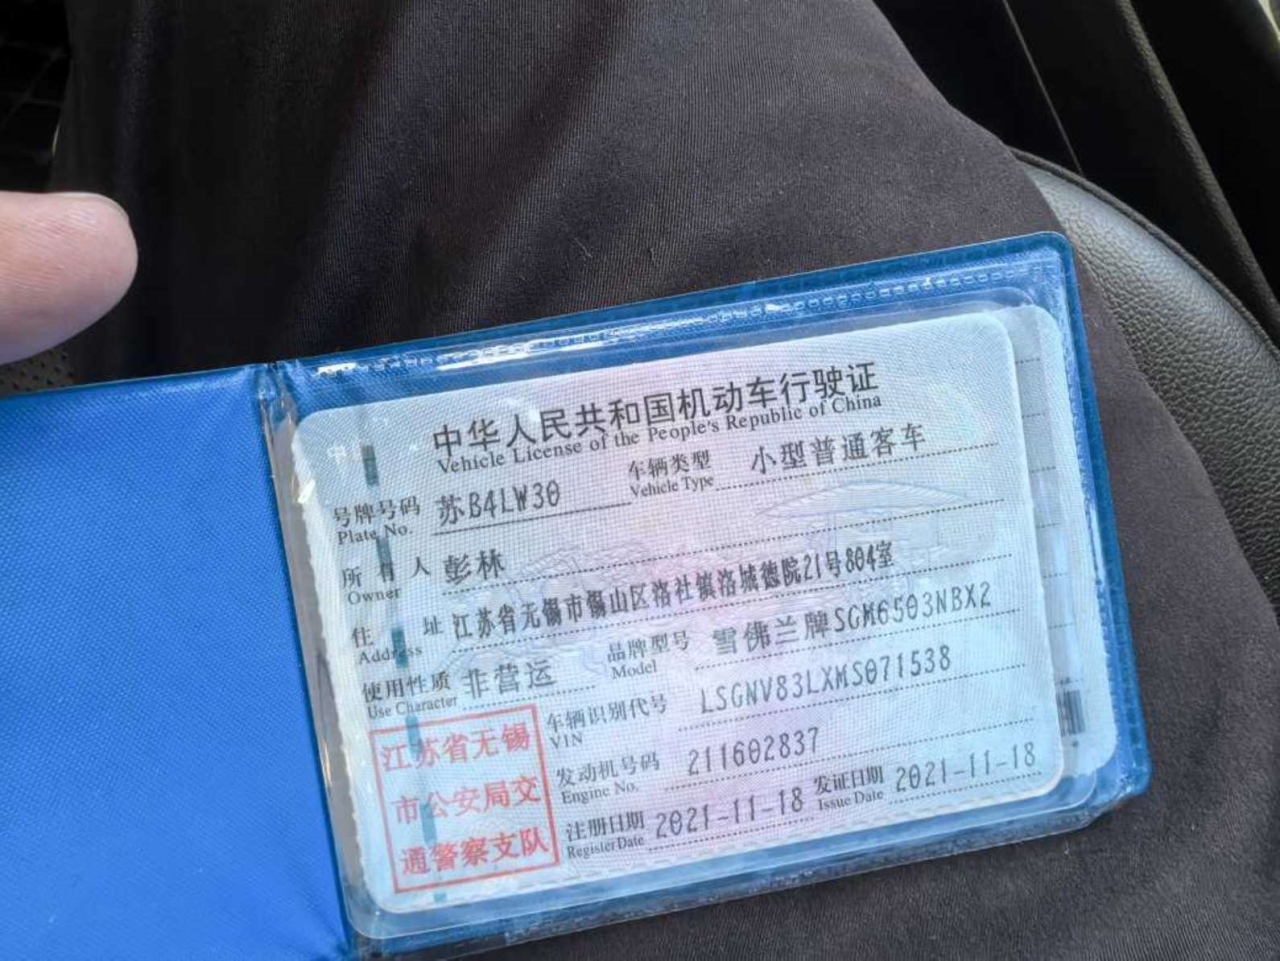 中华人民共和国机动车行驶证
Vehicle License of the People's Republic of China
号牌号码 苏B4LW30 车辆类型 小型普通客车
Plate No. Vehicle Type
所有人 彭林
Owner
住址 江苏省无锡市锡山区洛社镇洛城德院21号804室
Address
使用性质 非营运 品牌型号 雪佛兰牌SGM6503NBX2
Use Character Model
车辆识别代号 LSGNV83LXMS071538
VIN
发动机号码 211602837
Engine No.
注册日期 2021-11-18 发证日期 2021-11-18
Register Date Issue Date
江苏省无锡
市公安局交
通警察支队